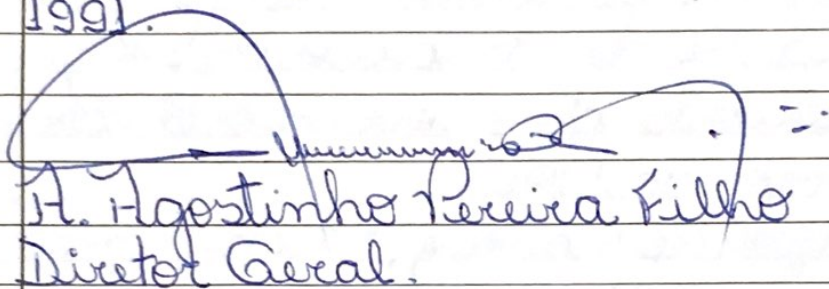 1991.
A. Agostinho Pereira Filho
Diretor Geral.